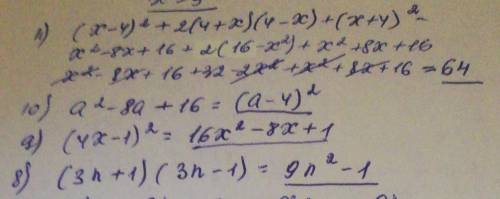 11) (x-4)² + 2(4+x)(4-x) + (x+4)² =
x² - 8x + 16 + 2(16-x²) + x² + 8x + 16
x² - 8x + 16 + 32 - 2x² + x² + 8x + 16 = 64
10) a² - 8a + 16 = (a-4)²
9) (4x-1)² = 16x² - 8x + 1
8) (3n+1)(3n-1) = 9n² - 1